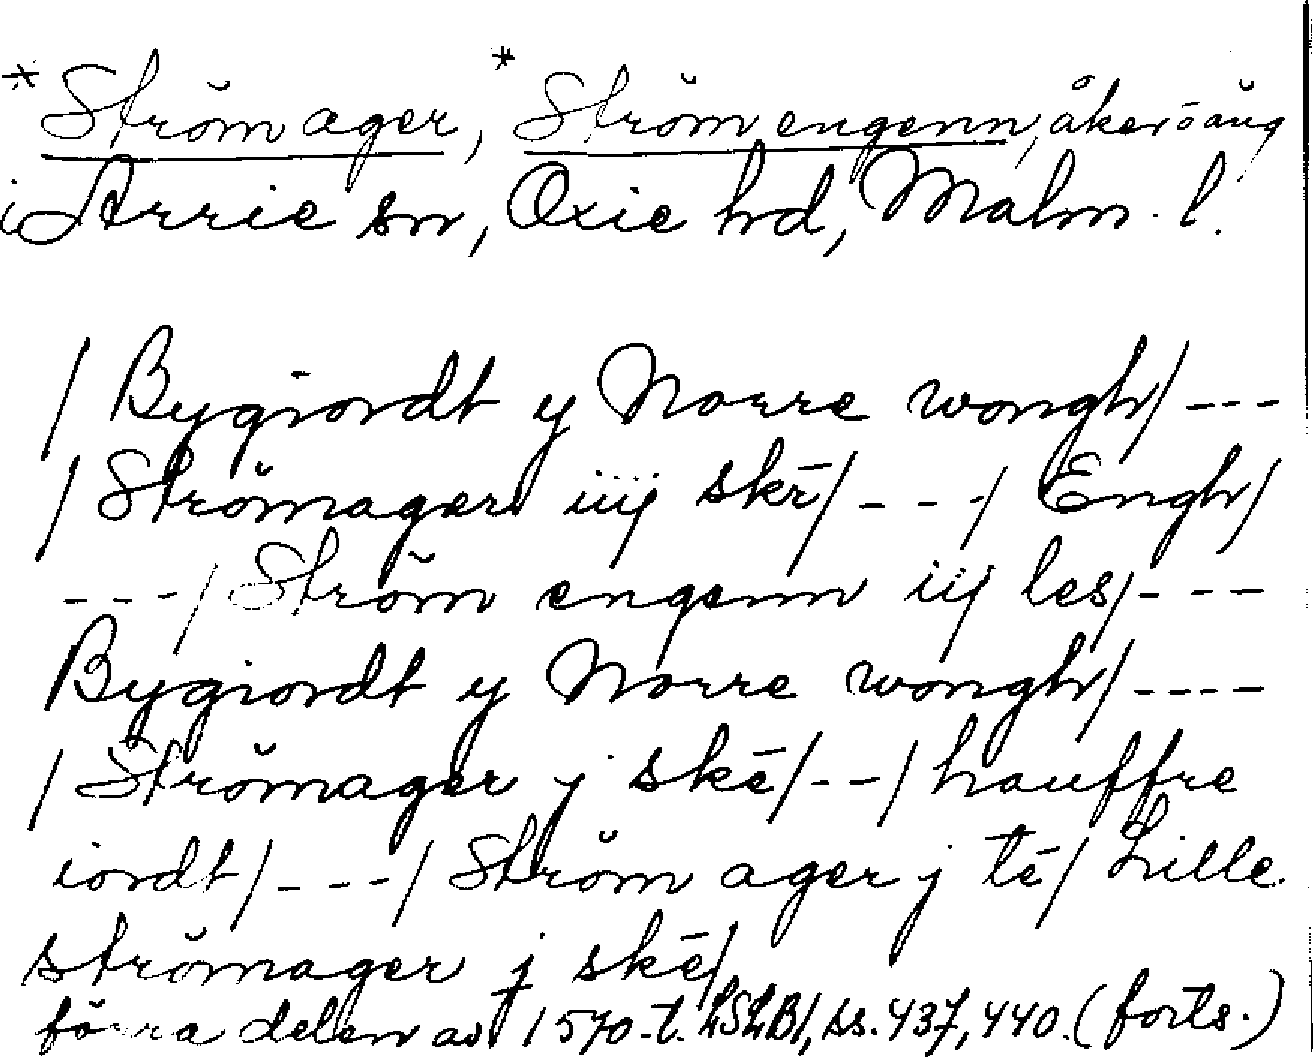 *Ström ager, *Ström engenn, åker o äng
i Arrie sn, Oxie hd, Malm. l.
/ Bygiordt y Norre wongh/ ---
/ Strömager iiij skē/ --- / Engh/
--- / Ström engenn iij les/ ---
Bygiordt y Norre wongh/ ----
/ Strömager j skē/ -- / hauffre
iordt/ --- / Ström ager j tē/ Lille
strömager j skē/
förra delen av 1570-t. LSLB1, ss. 437, 440. (forts.)